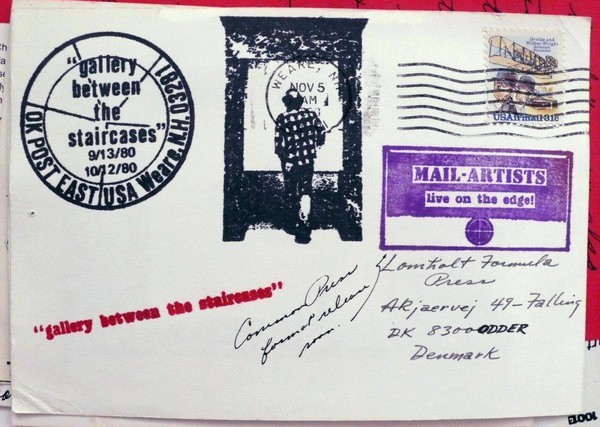 "gallery
between
the
staircases"
9/13/80
10/12/80
OK POST EAST/USA Weare, N.H. 03281
WEARE, N
NOV 5
AM
Orville and
Wilbur Wright
USAirmail 31c
MAIL-ARTISTS
live on the edge!
"gallery between the staircases"
Common Press
format release
soon.
Lomholt Formula
Press
AKjaervej 49-Falling
DK 8300 ODDER
Denmark